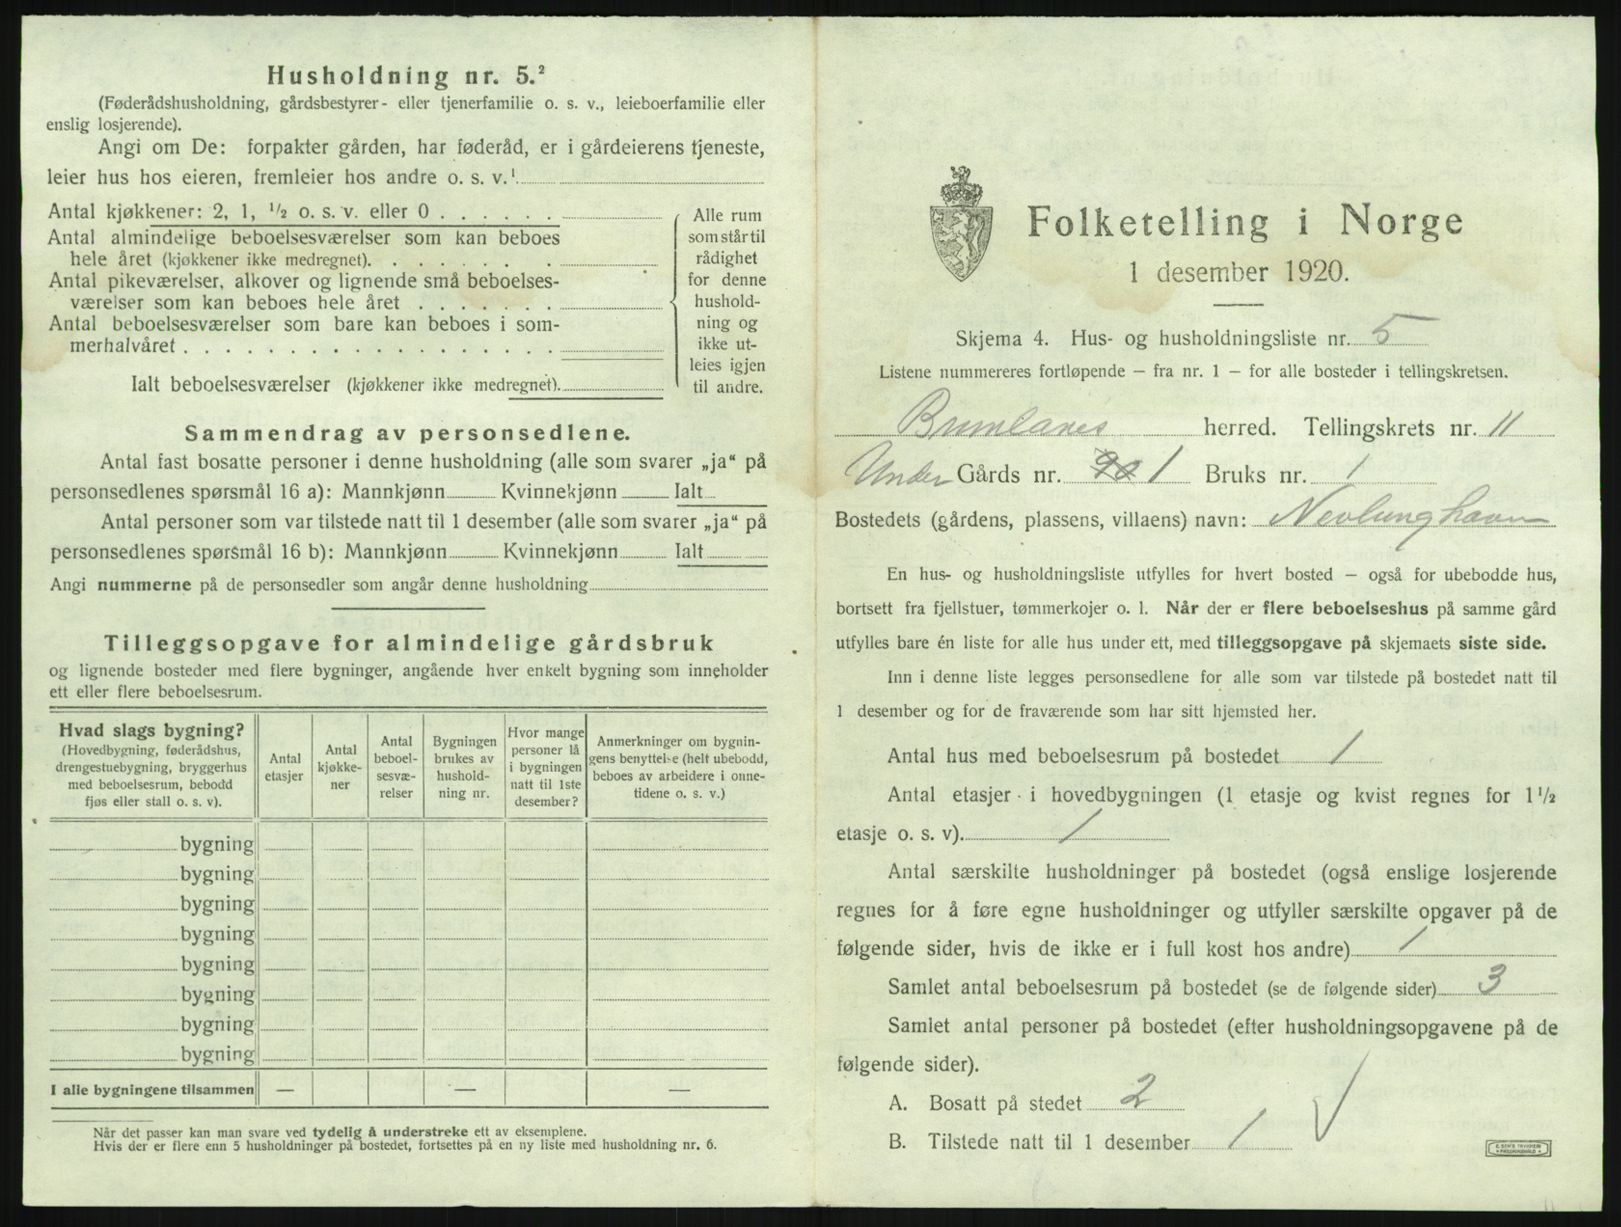 Husholdning nr. 5.²
(Føderådshusholdning, gårdsbestyrer- eller tjenerfamilie o. s. v., leieboerfamilie eller
enslig losjerende).
Angi om De: forpakter gården, har føderåd, er i gårdeierens tjeneste,
leier hus hos eieren, fremleier hos andre o. s. v.¹
Antal kjøkkener: 2, 1, ½ o. s. v. eller 0 . . . . . .
Antal almindelige beboelsesværelser som kan beboes
hele året (kjøkkener ikke medregnet). . . . . . . .
Antal pikeværelser, alkover og lignende små beboelses-
værelser som kan beboes hele året . . . . . . .
Antal beboelsesværelser som bare kan beboes i som-
merhalvåret . . . . . . . . . . . . . . . . . .
Ialt beboelsesværelser (kjøkkener ikke medregnet).
Alle rum
som står til
rådighet
for denne
hushold-
ning og
ikke ut-
leies igjen
til andre.
Sammendrag av personsedlene.
Antal fast bosatte personer i denne husholdning (alle som svarer „ja“ på
personsedlenes spørsmål 16 a): Mannkjønn Kvinnekjønn Ialt
Antal personer som var tilstede natt til 1 desember (alle som svarer „ja“ på
personsedlenes spørsmål 16 b): Mannkjønn Kvinnekjønn Ialt
Angi nummerne på de personsedler som angår denne husholdning
Tilleggsopgave for almindelige gårdsbruk
og lignende bosteder med flere bygninger, angående hver enkelt bygning som inneholder
ett eller flere beboelsesrum.
Hvad slags bygning?
(Hovedbygning, føderådshus,
drengestuebygning, bryggerhus
med beboelsesrum, bebodd
fjøs eller stall o. s. v).
Antal
etasjer
Antal
kjøkke-
ner
Antal
beboel-
sesvæ-
relser
Bygningen
brukes av
hushold-
ning nr.
Hvor mange
personer lå
i bygningen
natt til 1ste
desember?
Anmerkninger om bygnin-
gens benyttelse (helt ubebodd,
beboes av arbeidere i onne-
tidene o. s. v.)
bygning
bygning
bygning
bygning
bygning
bygning
bygning
bygning
I alle bygningene tilsammen — — —
Når det passer kan man svare ved tydelig å understreke ett av eksemplene.
Hvis der er flere enn 5 husholdninger på bostedet, fortsettes på en ny liste med husholdning nr. 6.
Folketelling i Norge
1 desember 1920.
Skjema 4. Hus- og husholdningsliste nr. 5
Listene nummereres fortløpende — fra nr. 1 — for alle bosteder i tellingskretsen.
Brunlanes herred. Tellingskrets nr. 11
Under Gårds nr. 90 1 Bruks nr. 1
Bostedets (gårdens, plassens, villaens) navn: Nevlunghavn
En hus- og husholdningsliste utfylles for hvert bosted — også for ubebodde hus,
bortsett fra fjellstuer, tømmerkojer o. l. Når der er flere beboelseshus på samme gård
utfylles bare én liste for alle hus under ett, med tilleggsopgave på skjemaets siste side.
Inn i denne liste legges personsedlene for alle som var tilstede på bostedet natt til
1 desember og for de fraværende som har sitt hjemsted her.
Antal hus med beboelsesrum på bostedet 1
Antal etasjer i hovedbygningen (1 etasje og kvist regnes for 1½
etasje o. s. v). 1
Antal særskilte husholdninger på bostedet (også enslige losjerende
regnes for å føre egne husholdninger og utfyller særskilte opgaver på de
følgende sider, hvis de ikke er i full kost hos andre) 1
Samlet antal beboelsesrum på bostedet (se de følgende sider) 3
Samlet antal personer på bostedet (efter husholdningsopgavene på de
følgende sider).
A. Bosatt på stedet 2
B. Tilstede natt til 1 desember 1